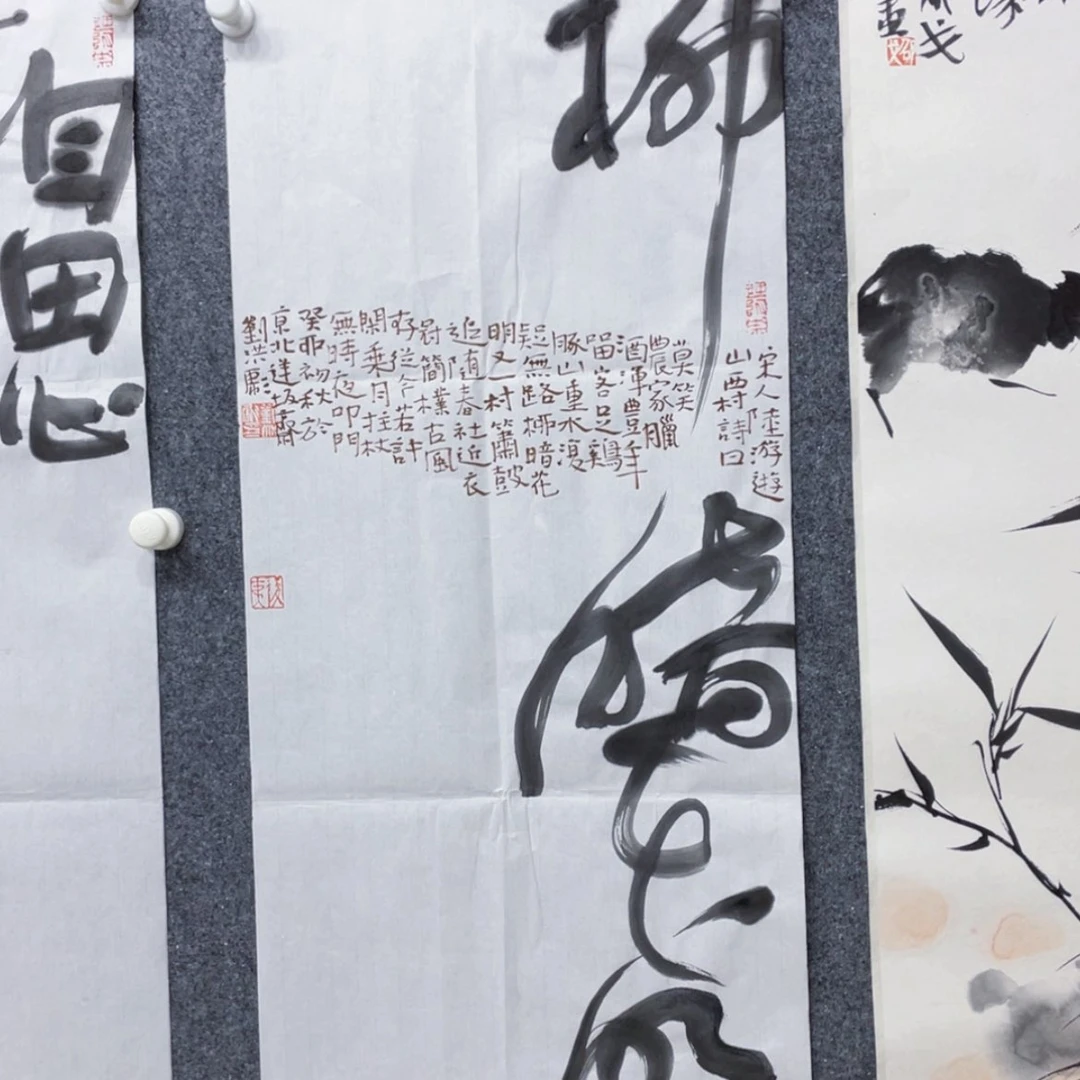 柳暗花
宋人陸游遊
山西村詩曰
莫笑
農家臘
酒渾豐年
留客足鷄
豚山重水復
疑無路柳暗花
明又一村簫鼓
追隨春社近衣
冠簡樸古風
存從今若許
閑乘月拄杖
無時夜叩門
癸卯初秋於
京北蓮坂齋
劉洪彪
自田心